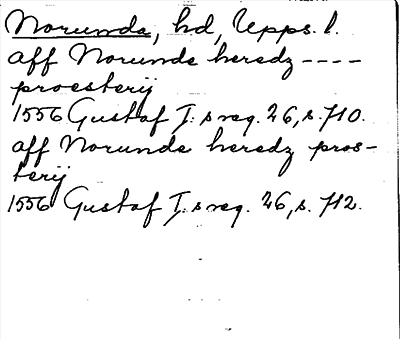 Norunda, hd, Upps. l.
aff Norunde heredz ----
proesterij
1556 Gustaf I:s reg. 26, s. 710.
aff Norunde heredz pros-
terij
1556 Gustaf I:s reg. 26, s. 712.